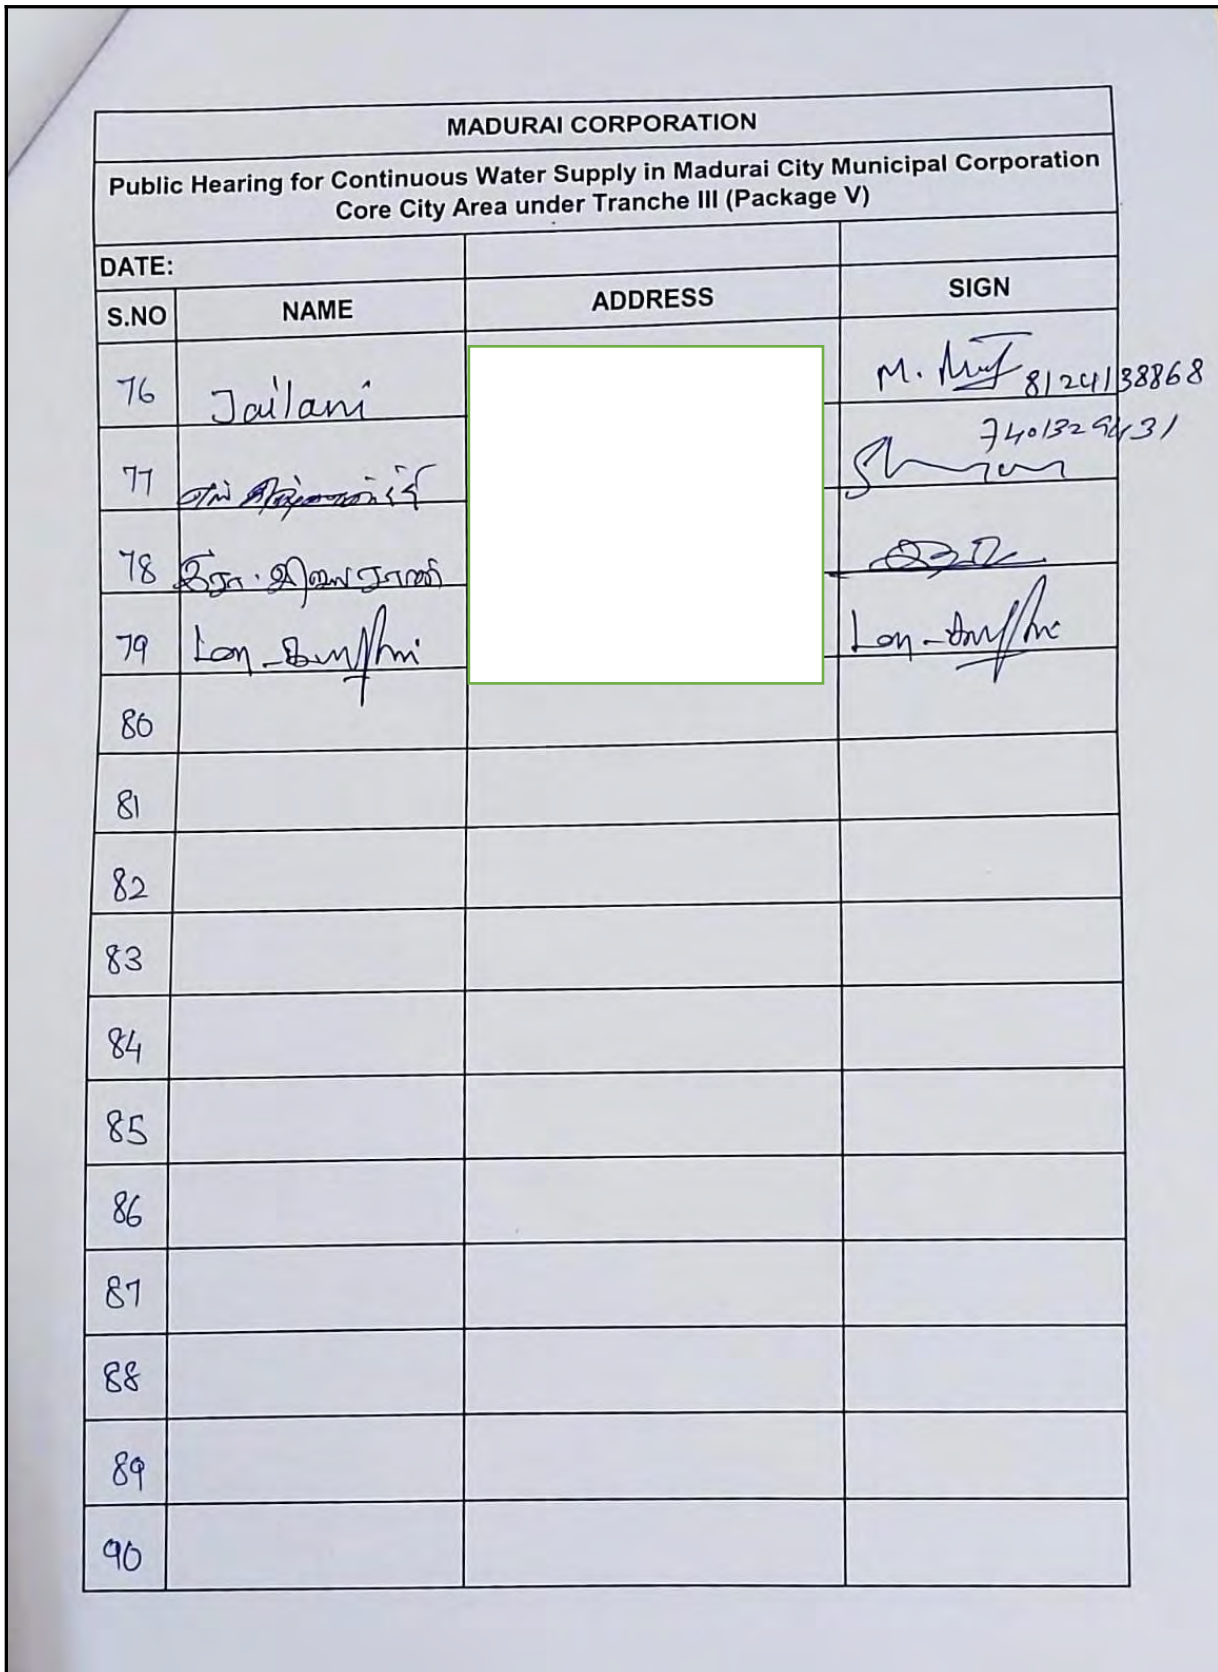 MADURAI CORPORATION
Public Hearing for Continuous Water Supply in Madurai City Municipal Corporation
Core City Area under Tranche III (Package V)
DATE:
S.NO NAME ADDRESS SIGN
76 Jailani M. 8124138868
7401329431
77
78
79
80
81
82
83
84
85
86
87
88
89
90